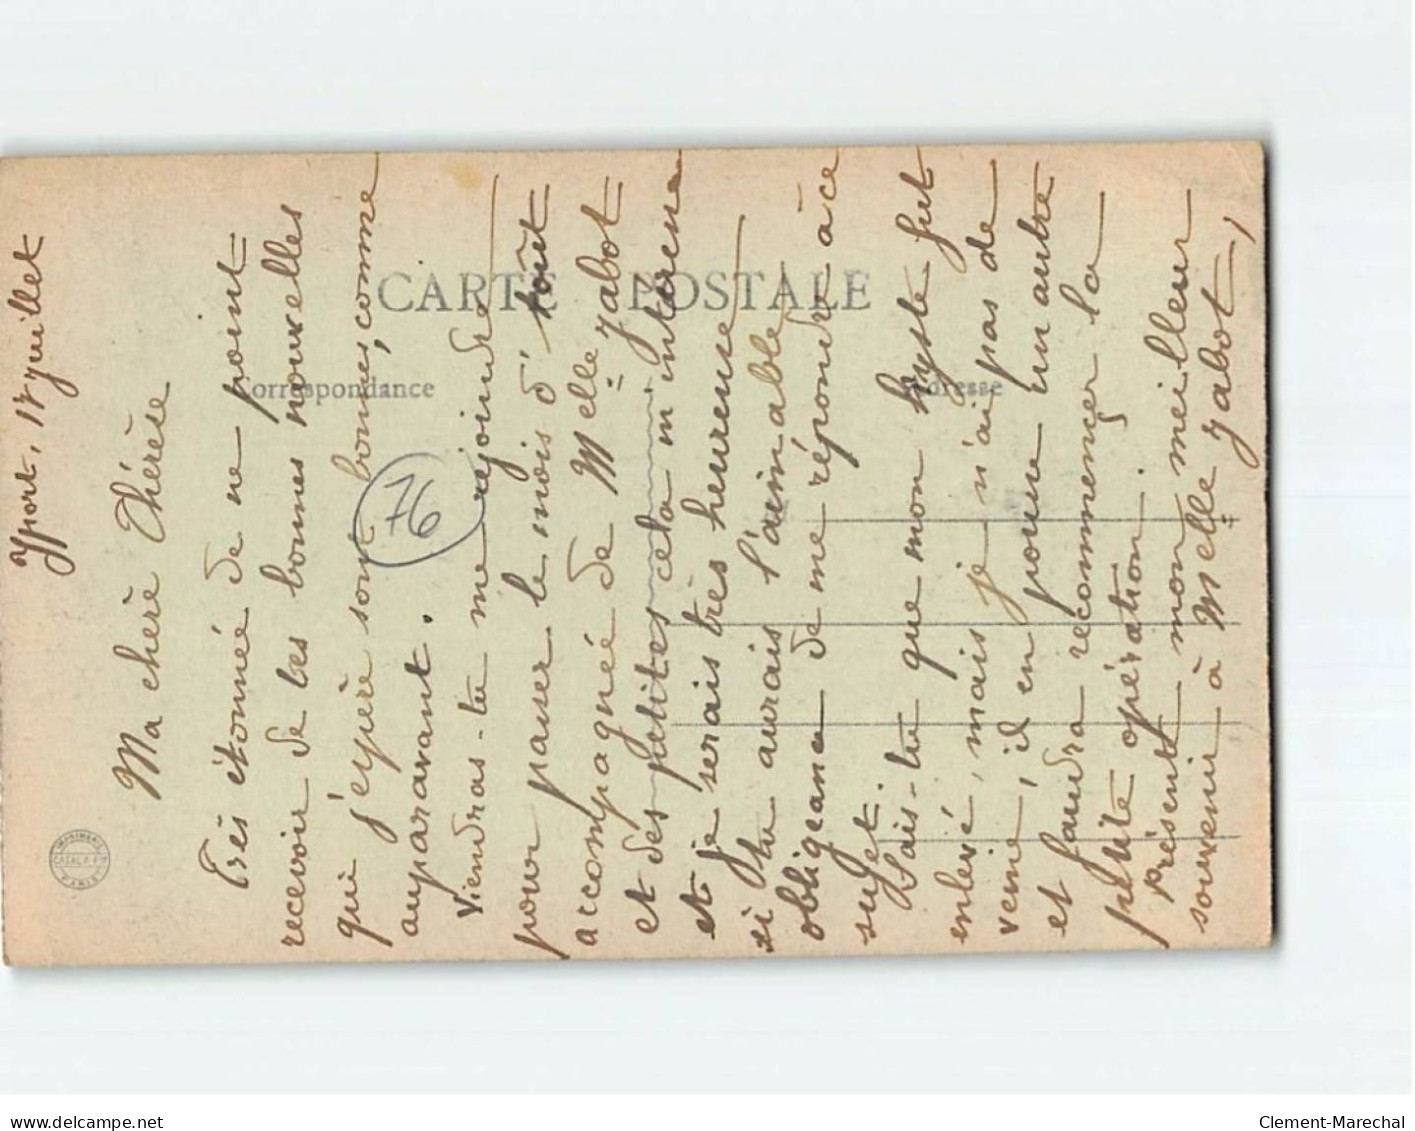 Yport, 17 juillet
Ma chère Thérèse
Très étonnée de ne point
recevoir de tes bonnes nouvelles
qui j'espère sont bonnes, comme
auparavant.
Viendras-tu me rejoindre
pour passer le mois d'Août
accompagnée de Melle Jabot
et des petites cela m'intéresse
et je serais très heureuse
si tu aurais l'aimable
obligeance de me répondre à ce
sujet.
Sais-tu que mon kyste fut
enlevé, mais je n'ai pas de
veine, il en pousse un autre
et faudra recommencer la
petite opération.
Présente mon meilleur
souvenir à Melle Jabot,
CARTE POSTALE
Correspondance
Adresse
76
IMPRIMERIE
PARIS
delcampe.net
Clement-Marechal